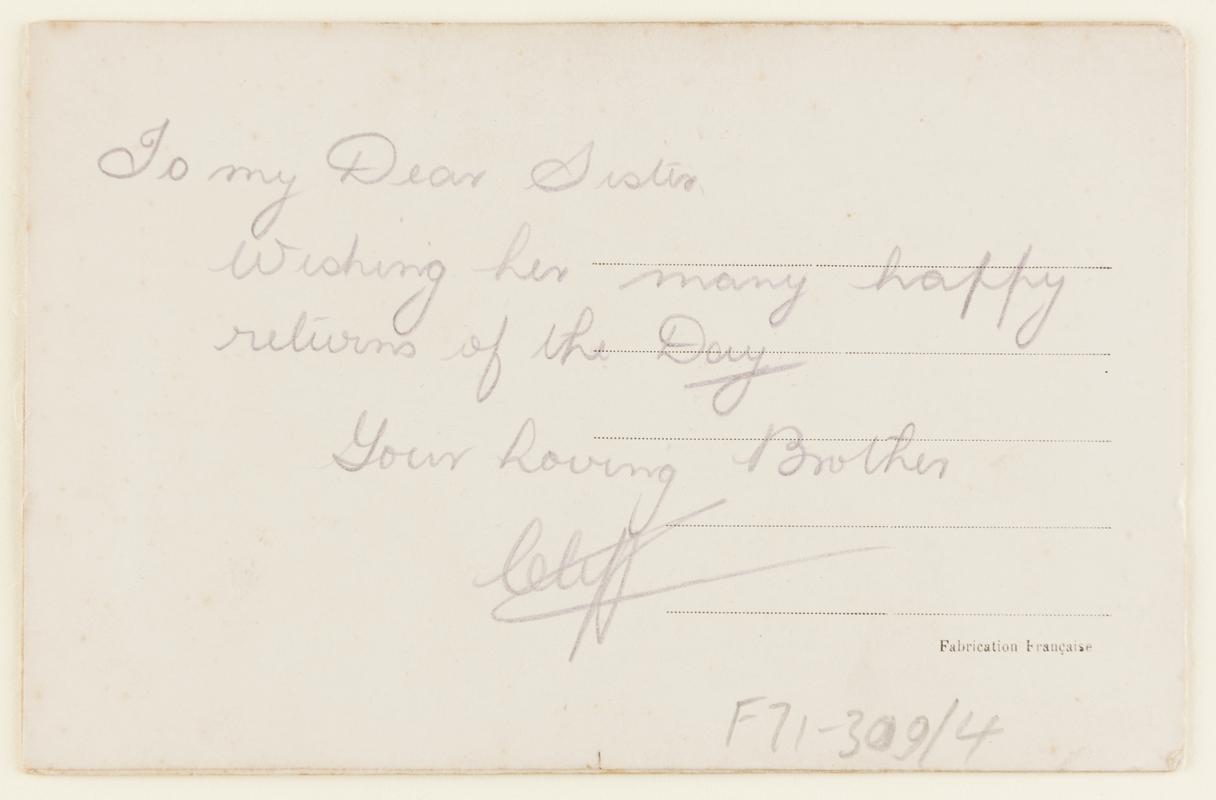 To my Dear Sister
Wishing her many happy
returns of the Day
Your Loving Brother
Cliff
Fabrication Française
F71-309/4